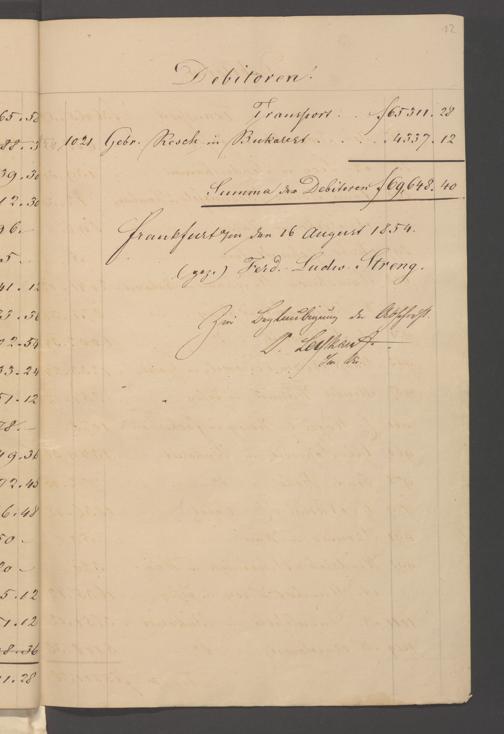 12
Debitoren.
Transport . . f 65311. 28
1021 Gebr. Rosch in Bukarest . . . . 4337. 12
Summa der Debitoren f 69,648. 40
Frankfurt a/m den 16 August 1854.
(gez.) Ferd. Ludw. Streng.
Zur Beglaubigung der Abschrift.
D.
65. 52
39. 30
12. 30
96. –
5. –
41. 12
72. 54
33. 24
51. 12
78. –
49. 36
72. 40
6. 48
50 –
20 –
5. 12
51. 12
8. 36
11. 28